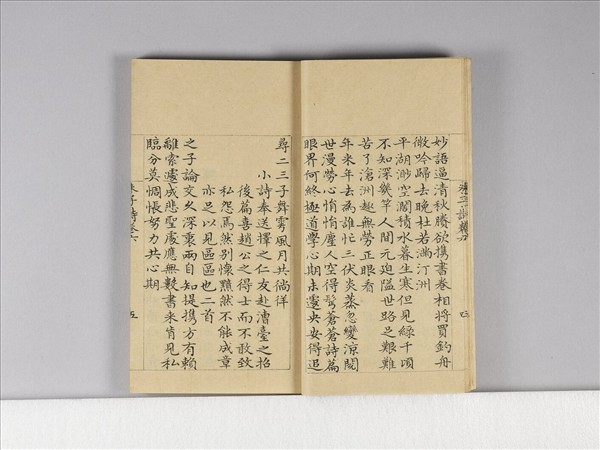 妙語逼清秋勝欲携書卷相將買釣舟
微吟歸去晚杜若滿汀洲
平湖渺空闊積水暮生寒但見綠千頃
不知深幾竿人間元迫隘世路足艱難
苦了滄洲趣無勞正眼看
年來年去為誰忙三伏炎蒸忽變涼閱
世漫勞心悄悄塵人空得鬢蒼蒼詩篇
眼界何終極道學心期未遽央安得追
尋二三子舞雩風月共倘徉
小詩奉送擇之仁友赴漕臺之招
後篇喜趙公之得士而不敢致
私怨焉然别懐黯然不能成章
亦足以見區區也二首
之子論文久深衷兩自知提携方有賴
離索遽成悲聖處應無斁書来肯見私
臨分莫惆悵努力共心期
朱子詩卷六
五